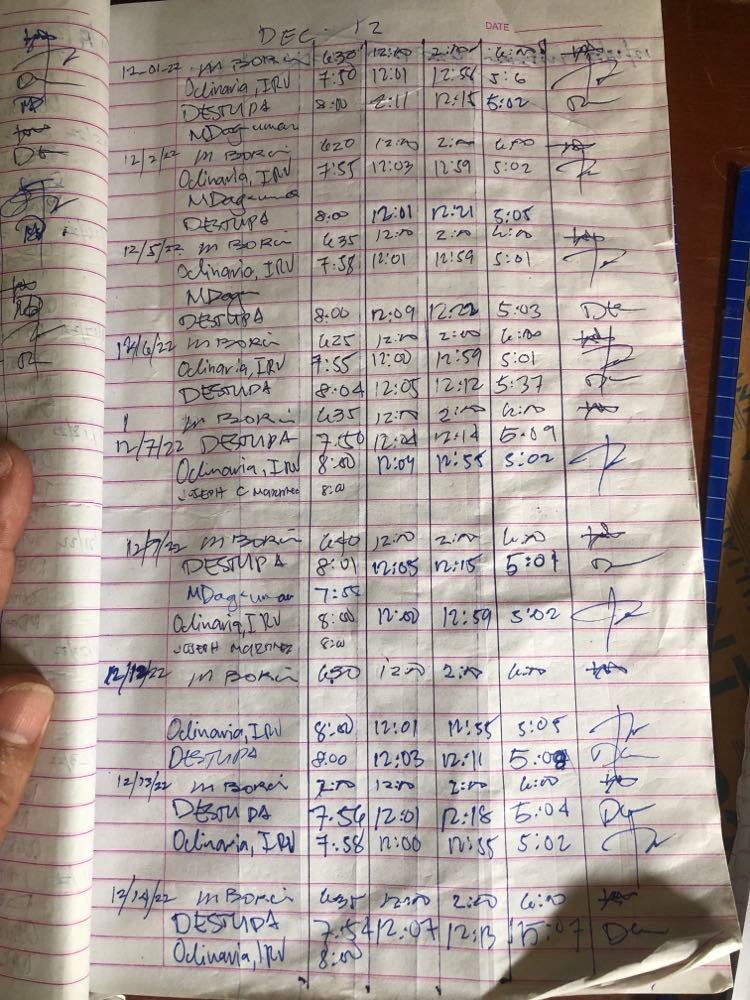 DEC - 12
DATE
12-01-22 M BORCI 630 12:00 2:00 6:00
Oclinaria, IRV 7:50 12:01 12:56 5:6
DESTUPA 8:00 12:15 5:02
MDagumar
12/2/22 M BORCI 620 12:00 2:00 6:00
Oclinaria, IRV 7:55 12:03 12:59 5:02
MDagumar
DESTUPA 8:00 12:01 12:21 5:05
12/5/22 M BORCI 635 12:00 2:00 6:00
Oclinaria, IRV 7:58 12:01 12:59 5:01
MDagu
DESTUPA 8:00 12:09 12:22 5:03
12/6/22 M BORCI 625 12:00 2:00 6:00
Oclinaria, IRV 7:55 12:00 12:59 5:01
DESTUPA 8:04 12:05 12:12 5:37
M BORCI 635 12:00 2:00 6:00
12/7/22 DESTUPA 7:50 12:04 12:14 5:09
Oclinaria, IRV 8:00 12:04 12:55 5:02
JOSEPH C MARTINEZ 8:00
M BORCI 640 12:00 2:00 6:00
DESTUPA 8:01 12:05 12:15 5:01
MDagumar 7:55
Oclinaria, IRV 8:00 12:00 12:59 5:02
JOSEPH MARTINEZ 8:00
12/12/22 M BORCI 650 12:00 2:00 6:00
Oclinaria, IRV 8:00 12:01 12:55 5:05
DESTUPA 8:00 12:03 12:11
12/13/22 M BORCI 12:00 2:00 6:00
DESTUPA 7:56 12:01 12:18 5:04
Oclinaria, IRV 7:58 12:00 12:55 5:02
12/14/22 M BORCI 635 12:00 2:00 6:00
DESTUPA 7:54 12:07 12:13 5:07
Oclinaria, IRV 8:00